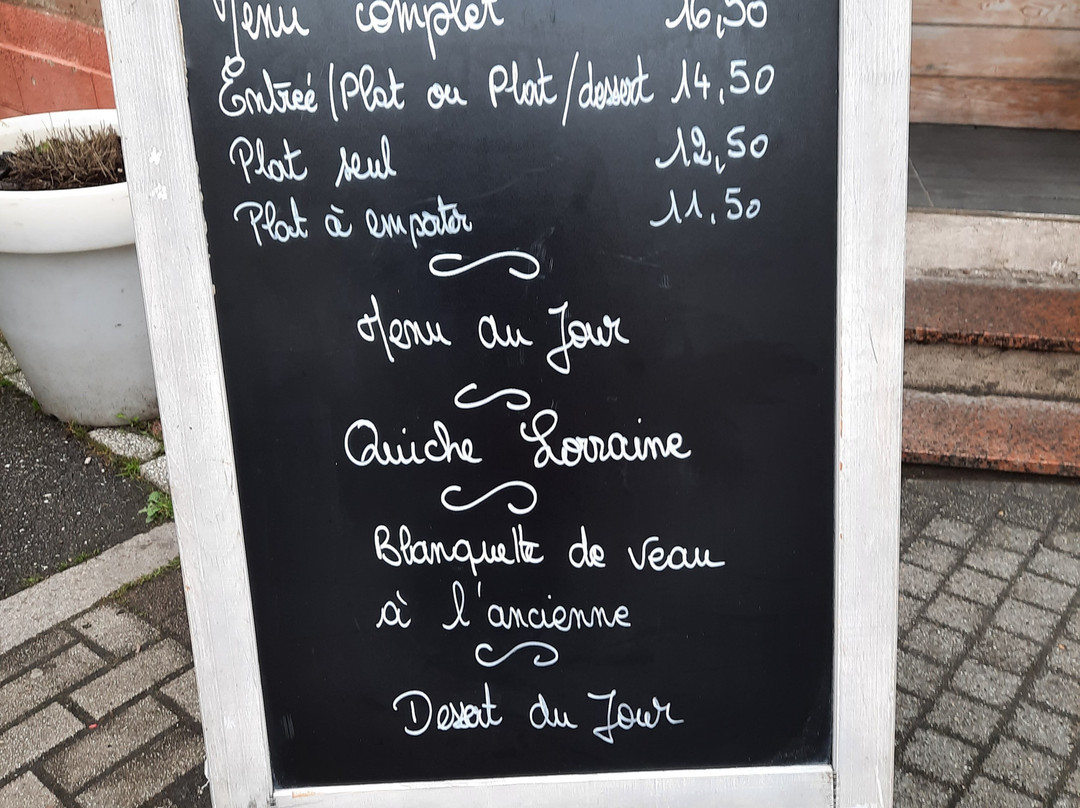 Menu complet 16,50
Entrée/Plat ou Plat/dessert 14,50
Plat seul 12,50
Plat à emporter 11,50
Menu du Jour
Quiche Lorraine
Blanquette de veau
à l'ancienne
Dessert du Jour